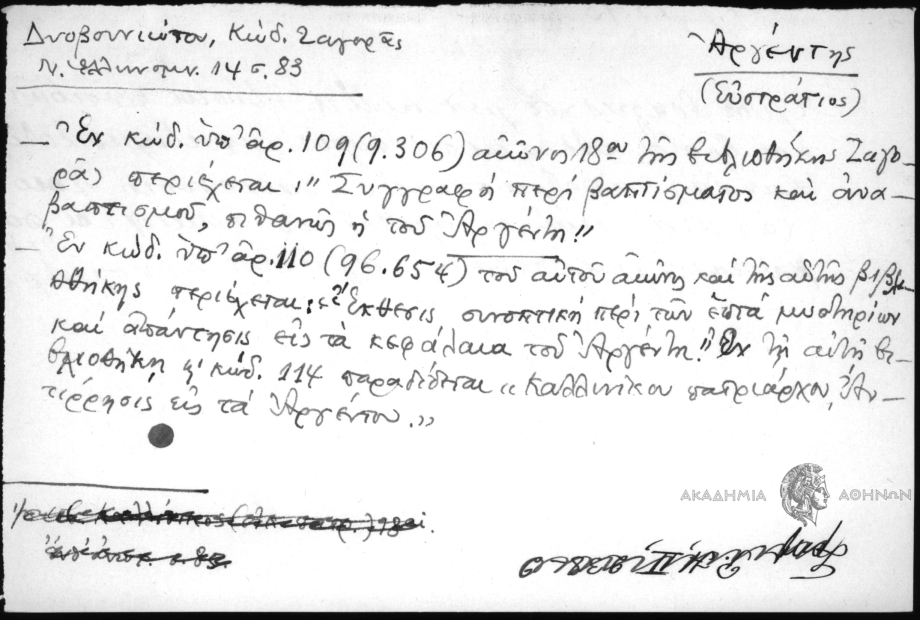 Δυοβουνιώτου, Κώδ. Ζαγορᾶς
Ν. Ἑλληνομν. 14 σ. 83
Ἀργέντης
(Εὐστράτιος)
— Ἐν κώδ. ὑπ' ἀρ. 109 (9.306) αἰῶνος 18ου τῆς βιβλιοθήκης Ζαγο-
ρᾶς περιέχεται: "Συγγραφή περί βαπτίσματος καί ἀνα-
βαπτισμοῦ, πιθανῶς ἡ τοῦ Ἀργέντη"
— Ἐν κώδ. ὑπ' ἀρ. 110 (96.654) τοῦ αὐτοῦ αἰῶνος καί τῆς αὐτῆς βιβλιο-
θήκης περιέχεται: "Ἔκθεσις συνοπτική περί τῶν ἑπτά μυστηρίων
καί ἀπάντησις εἰς τά κεφάλαια τοῦ Ἀργέντη." Ἐν τῇ αὐτῇ βι-
βλιοθήκῃ κώδ. 114 παραδίδεται "Καλλινίκου πατριάρχου, Ἀν-
τίρρησις εἰς τά Ἀργέντου."
ΑΚΑΔΗΜΙΑ ΑΘΗΝΩΝ